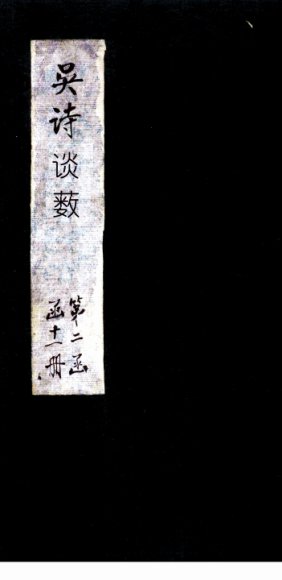 吴诗谈薮
第二函
函十一册